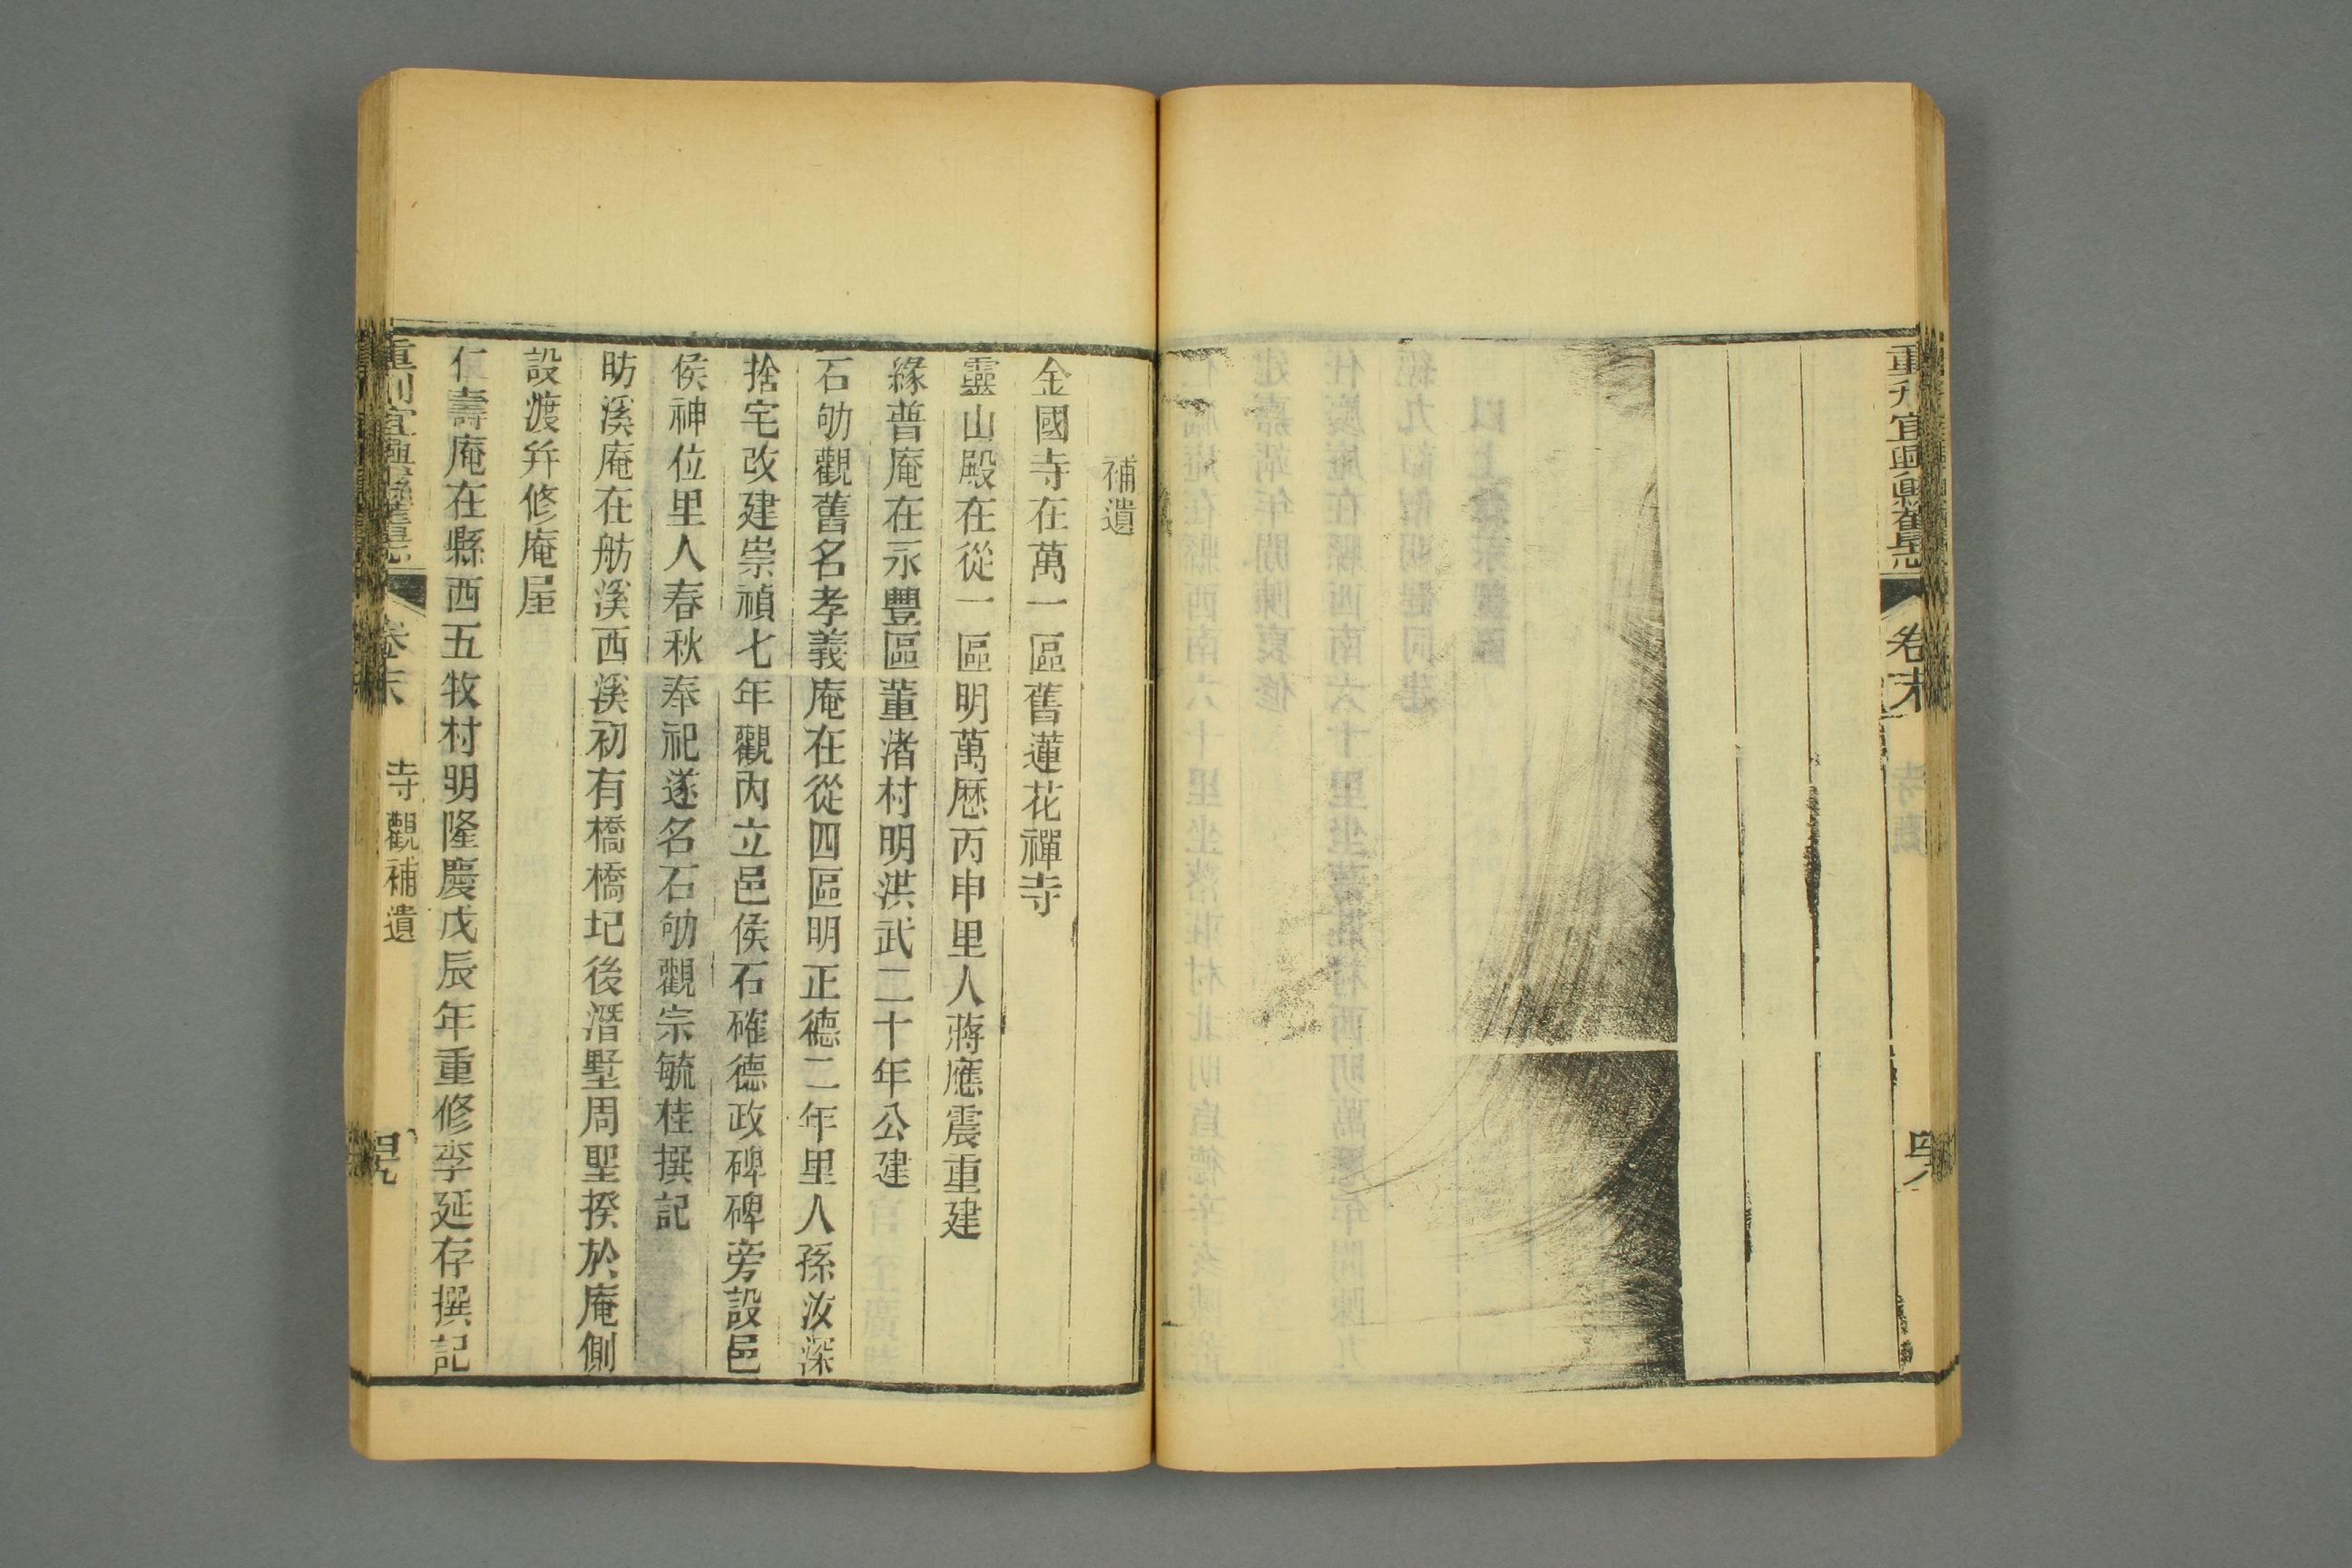 重刊宜興縣舊志
卷末
補遺
金國寺在萬一區舊蓮花禪寺
靈山殿在從一區明萬厯丙申里人蔣應震重建
緣普庵在永豐區董渚村明洪武二十年公建
石㔙觀舊名孝義庵在從四區明正德二年里人孫汝深
捨宅改建崇禎七年觀內立邑侯石確德政碑碑旁設邑
侯神位里人春秋奉祀遂名石㔙觀宗毓桂撰記
昉溪庵在舫溪西溪初有橋橋圮後潛墅周聖揆於庵側
設渡并修庵屋
仁壽庵在縣西五牧村明隆慶戊辰年重修李延存撰記
重刊宜興縣舊志
卷末
寺觀補遺